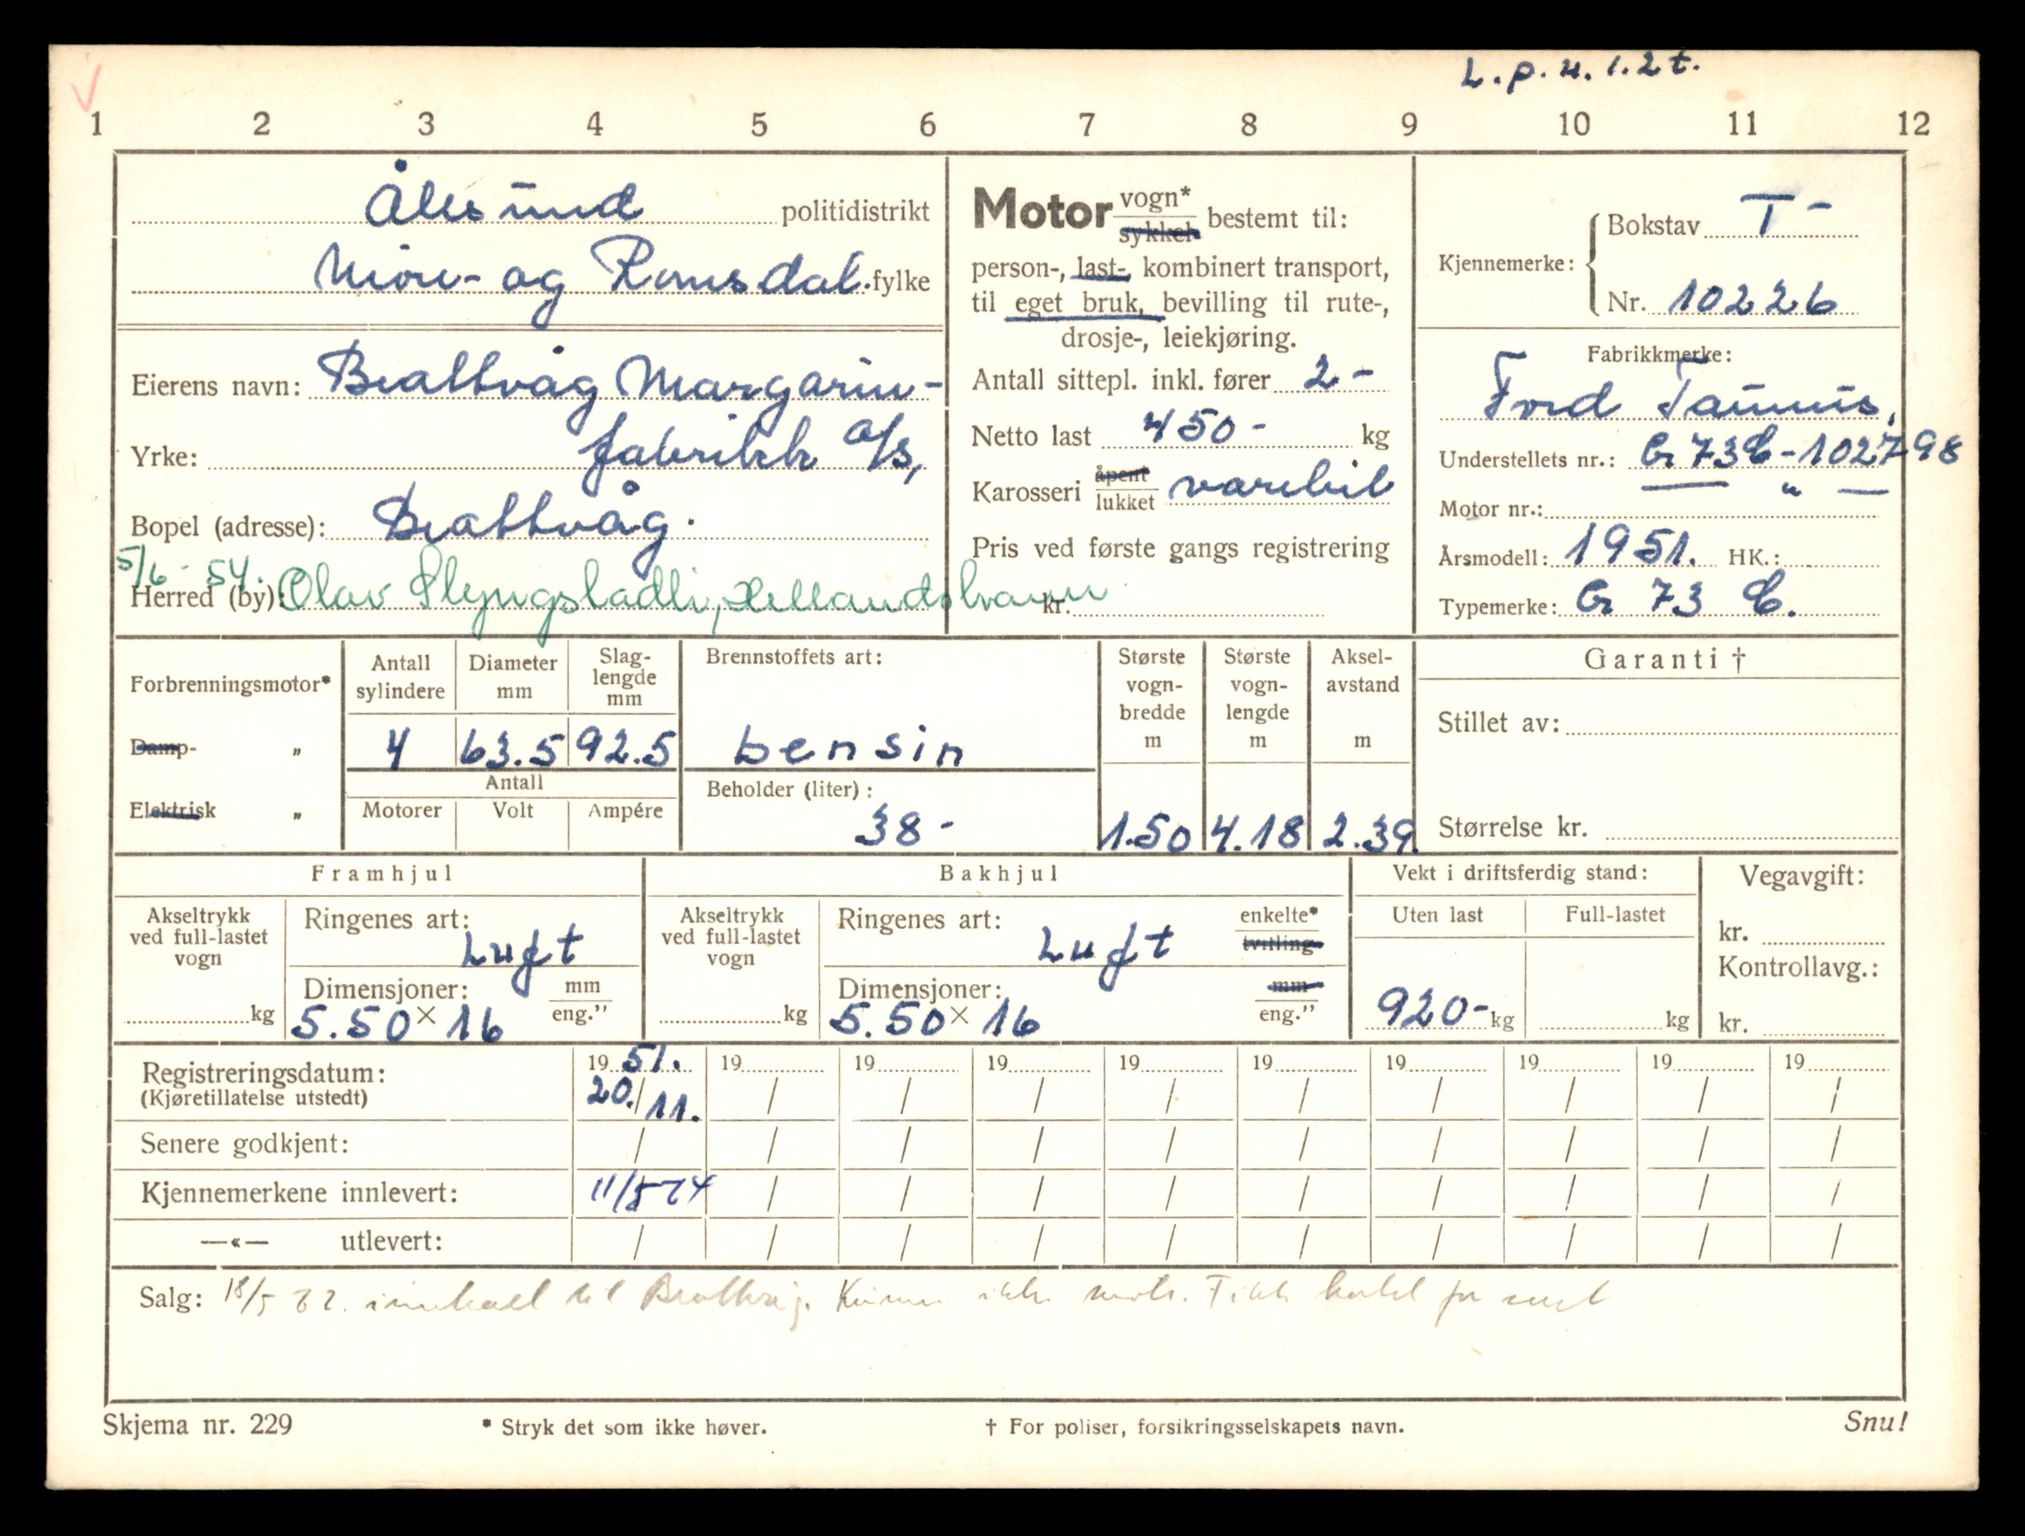 L.p.u.1.2t.
1 2 3 4 5 6 7 8 9 10 11 12
Ålesund politidistrikt
Møre- og Romsdal. fylke
Eierens navn: Brattvåg Margarin-
Yrke: fabrikk A/S,
Bopel (adresse): Brattvåg.
5/6-54. Olav Slyngstadli, Hellandshavn
Herred (by):
Motor vogn* sykkel bestemt til:
person-, last-, kombinert transport,
til eget bruk, bevilling til rute-,
drosje-, leiekjøring.
Antall sittepl. inkl. fører 2-
Netto last 450- kg
Karosseri åpent lukket varebil
Pris ved første gangs registrering
kr.
Kjennemerke: Bokstav T-
Nr. 10226
Fabrikkmerke:
Ford Taunus.
Understellets nr.: G73C-102798
Motor nr.: "
Årsmodell: 1951. HK.:
Typemerke: G 73 C.
Forbrenningsmotor*
Damp- "
Elektrisk "
Antall sylindere 4
Diameter mm 63.5
Slag-lengde mm 92.5
Antall
Motorer Volt Ampére
Brennstoffets art:
bensin
Beholder (liter):
38-
Største vogn-bredde m 1.50
Største vogn-lengde m 4.18
Aksel-avstand m 2.39.
Garanti †
Stillet av:
Størrelse kr.
Framhjul
Akseltrykk ved full-lastet vogn kg
Ringenes art: Luft
Dimensjoner: mm eng."
5.50 × 16
Bakhjul
Akseltrykk ved full-lastet vogn kg
Ringenes art: Luft enkelte* tvilling
Dimensjoner: mm eng."
5.50 × 16
Vekt i driftsferdig stand:
Uten last Full-lastet
920- kg kg
Vegavgift:
kr.
Kontrollavg.:
kr.
Registreringsdatum: 1951. 19 19 19 19 19 19 19 19 19
(Kjøretillatelse utstedt) 20./11. / / / / / / / / /
Senere godkjent: / / / / / / / / / /
Kjennemerkene innlevert: 11/5 74 / / / / / / / / /
—«— utlevert: / / / / / / / / / /
Salg: 18/5 innkalt til Brattvåg. ikke møte. Fikk for
Skjema nr. 229
* Stryk det som ikke høver.
† For poliser, forsikringsselskapets navn.
Snu!